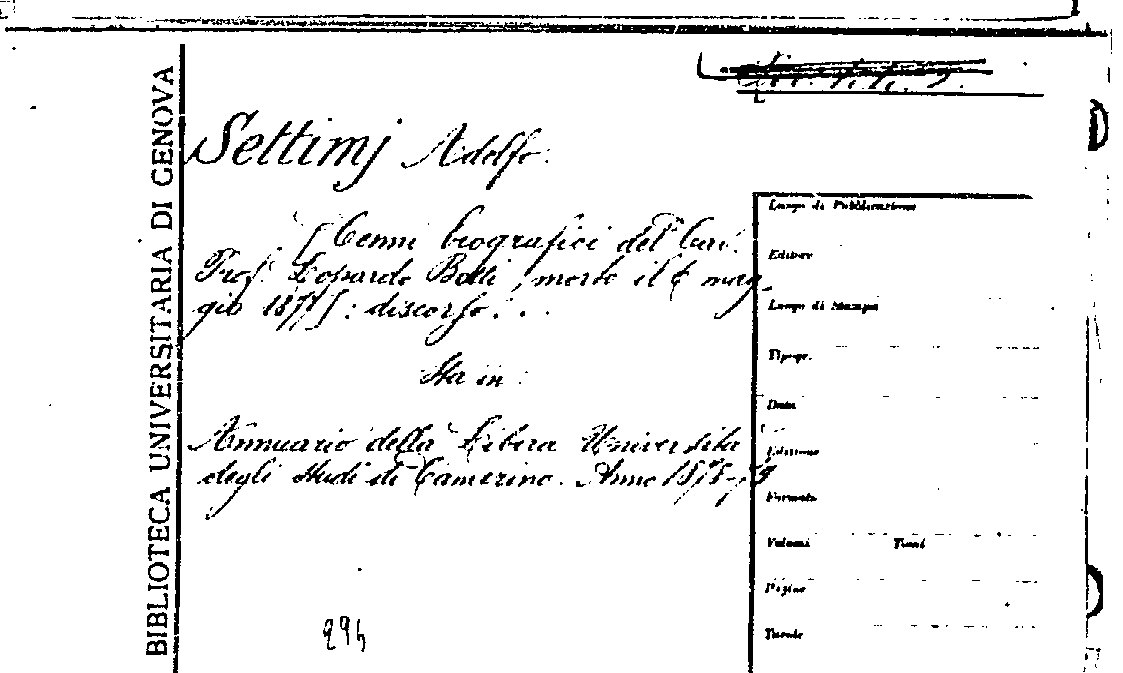 BIBLIOTECA UNIVERSITARIA DI GENOVA
Settimj Adolfo.
[Cenni biografici del Cav.
Prof. Leopardo Betti, morto il 6 mag-
gio 1878]: discorso. . .
Sta in:
Annuario della Libera Università
degli Studi di Camerino. Anno 1878-79
Luogo di Pubblicazione
Editore
Luogo di Stampa
Tipogr.
Data
Edizione
Formato
Volumi Tomi
Pagine
Tavole